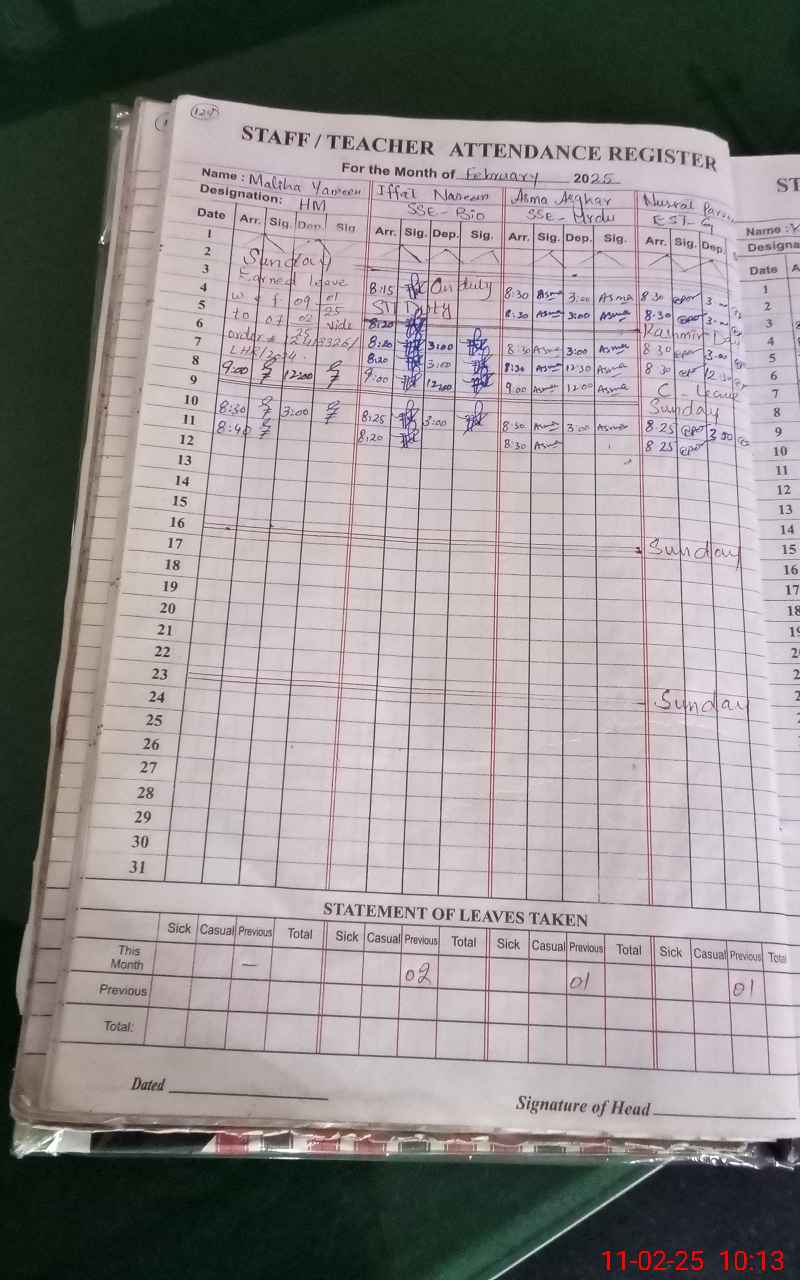 124
STAFF / TEACHER ATTENDANCE REGISTER
For the Month of February 2025
Name : Maliha Yameen Iffat Naseem Asma Asghar Nusrat
Designation: HM SSE - Bio SSE - Urdu EST - G
Date Arr. Sig. Dep. Sig Arr. Sig. Dep. Sig. Arr. Sig. Dep. Sig. Arr. Sig. Dep.
1
2 Sunday
3 Earned leave 8:15 On duty 8:30 Asma 3:00 Asma 8 30
4 w e f 09 01 25 8:30 Asma 3:00 Asma 8:30
5 to 07 02 25 vide 8:20 Kashmir Day
6 order # 8:20 3:00 8:30 Asma 3:00 Asma 8 30 3:00
7 8:20 3:00 8:30 Asma 12:30 Asma 8 30 12 30
8 9:00 12:00 9:00 12:00 9:00 Asma 12:00 Asma C - leave
9 Sunday
10 8:30 3:00 8:25 3:00 8:30 Asma 3:00 Asma 8 25 3 00
11 8:40 8:20 8:30 Asma 8 25
12
13
14
15
16 Sunday
17
18
19
20
21
22
23 Sunday
24
25
26
27
28
29
30
31
STATEMENT OF LEAVES TAKEN
Sick Casual Previous Total Sick Casual Previous Total Sick Casual Previous Total Sick Casual Previous Total
This Month — 02 01 01
Previous
Total:
Dated
Signature of Head
ST
Name :
Designa
Date A
1
2
3
4
5
6
7
8
9
10
11
12
13
14
15
16
17
18
19
11-02-25 10:13